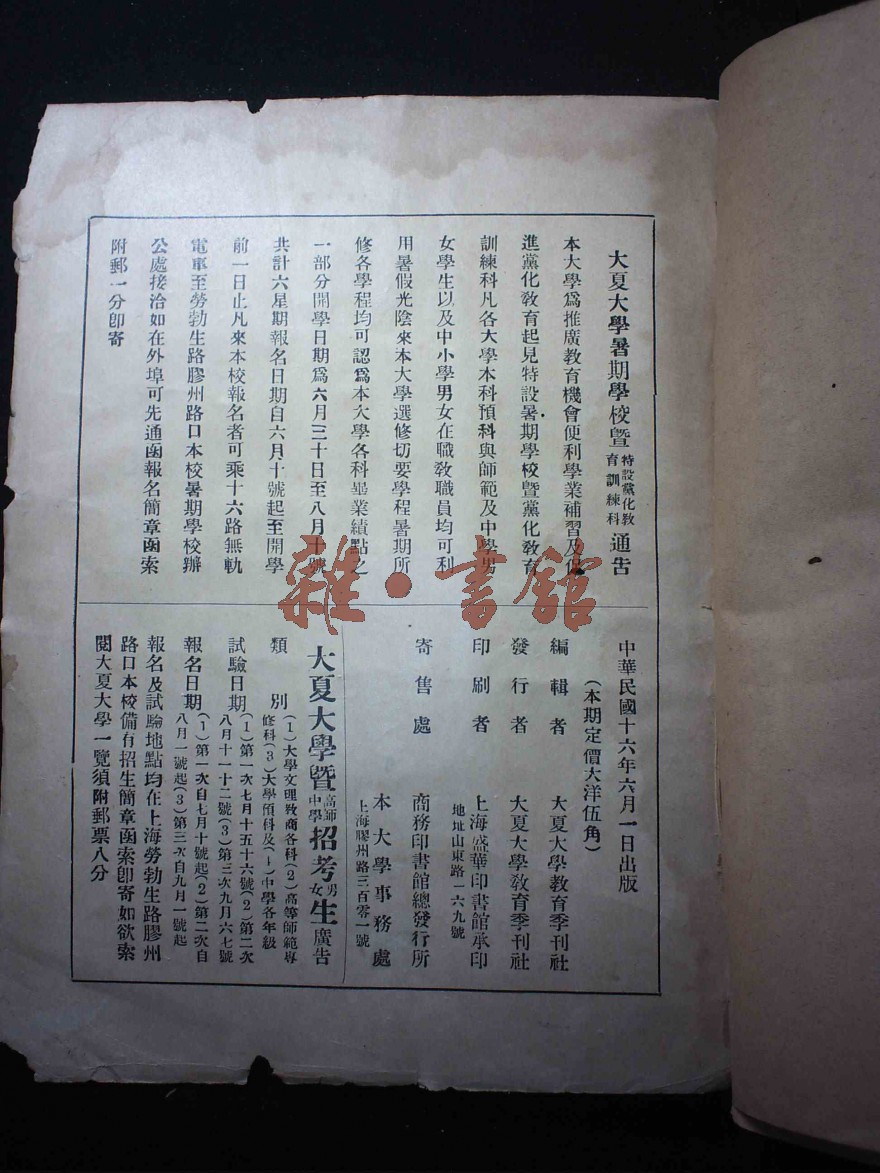 大夏大學暑期學校暨特設黨化教育訓練科通告
本大學爲推廣教育機會便利學業補習及促
進黨化教育起見特設暑期學校暨黨化教育
訓練科凡各大學本科預科與師範及中學男
女學生以及中小學男女在職教職員均可利
用暑假光陰來本大學選修切要學程暑期所
修各學程均可認爲本大學各科畢業績點之
一部分開學日期爲六月三十日至八月十號
共計六星期報名日期自六月十號起至開學
前一日止凡來本校報名者可乘十六路無軌
電車至勞勃生路膠州路口本校暑期學校辦
公處接洽如在外埠可先通函報名簡章函索
附郵一分卽寄
中華民國十六年六月一日出版
（本期定價大洋伍角）
編輯者 大夏大學教育季刊社
發行者 大夏大學教育季刊社
印刷者 上海盛華印書館承印
地址山東路一六九號
寄售處 商務印書館總發行所
本大學事務處
上海膠州路三百零一號
大夏大學暨高師中學招考男女生廣告
類別 (1)大學文理教商各科(2)高等師範專
修科(3)大學預科及(4)中學各年級
試驗日期 (1)第一次七月十五十六號(2)第二次
八月十一十二號(3)第三次九月六七號
報名日期 (1)第一次自七月十號起(2)第二次自
八月一號起(3)第三次自九月一號起
報名及試驗地點均在上海勞勃生路膠州
路口本校備有招生簡章函索卽寄如欲索
閱大夏大學一覽須附郵票八分
雜·書館